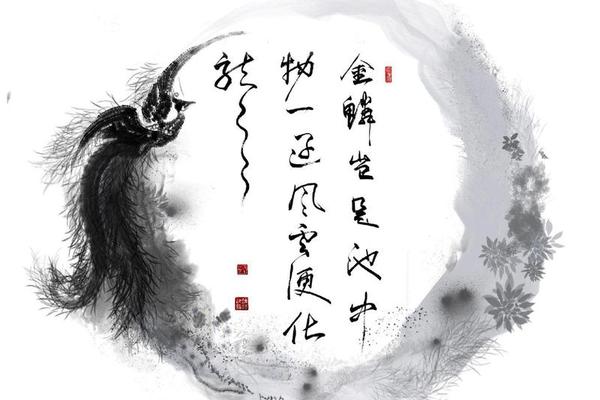 金鳞岂是池中
物一遇风雲便化
龙~~~